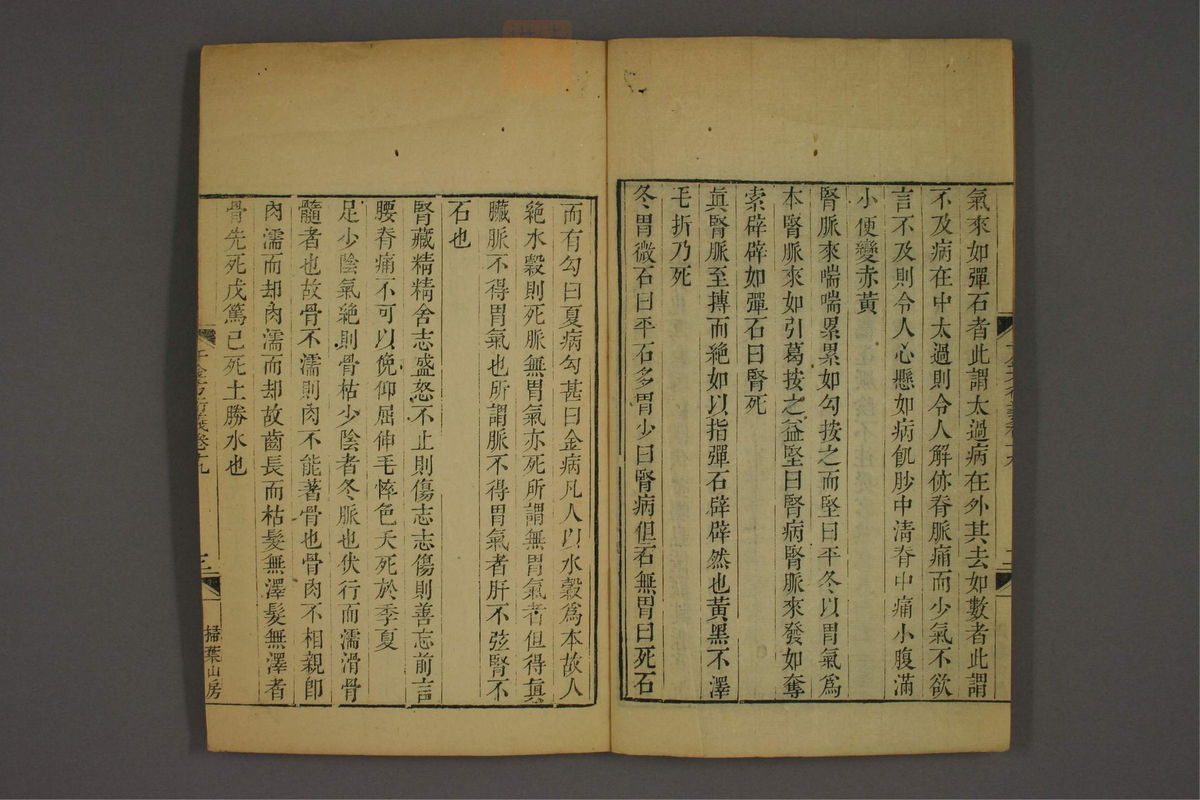 氣來如彈石者此謂太過病在外其去如數者此謂
不及病在中太過則令人解㑊脊脈痛而少氣不欲
言不及則令人心懸如病飢䏚中淸脊中痛小腹滿
小便變赤黃
腎脈來喘喘累累如勾按之而堅曰平冬以胃氣爲
本腎脈來如引葛按之益堅曰腎病腎脈來發如奪
索辟辟如彈石曰腎死
眞腎脈至搏而絶如以指彈石辟辟然也黃黑不澤
毛折乃死
冬胃微石曰平石多胃少曰腎病但石無胃曰死石
而有勾曰夏病勾甚曰金病凡人以水穀爲本故人
絶水穀則死脈無胃氣亦死所謂無胃氣者但得眞
臟脈不得胃氣也所謂脈不得胃氣者肝不弦腎不
石也
腎藏精精舍志盛怒不止則傷志志傷則善忘前言
腰脊痛不可以俛仰屈伸毛悴色夭死於季夏
足少陰氣絶則骨枯少陰者冬脈也伏行而濡滑骨
髓者也故骨不濡則肉不能著骨也骨肉不相親卽
肉濡而却肉濡而却故齒長而枯髮無澤髮無澤者
骨先死戊篤己死土勝水也
千金方衍義卷十九
三
掃葉山房